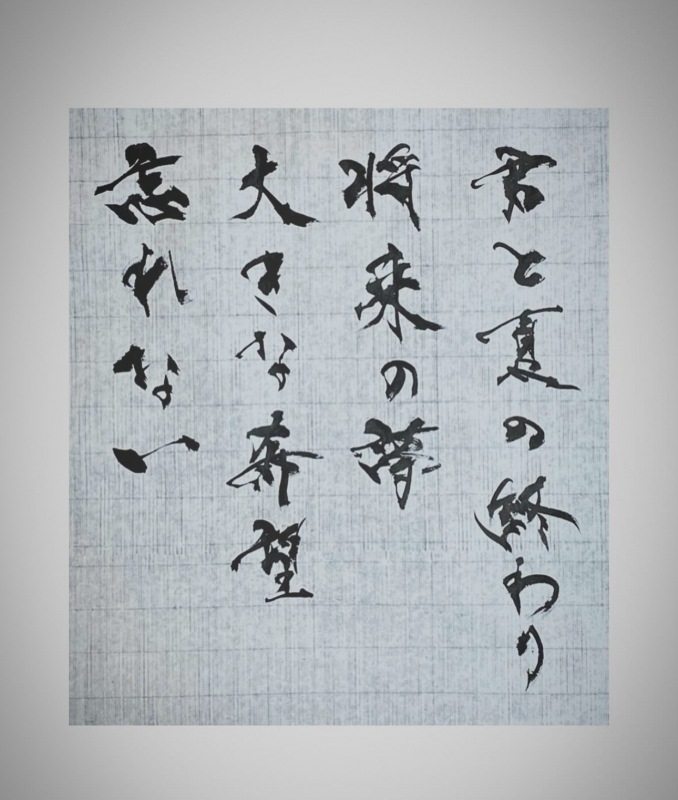 君と夏の終わり
将来の夢
大きな希望
忘れない